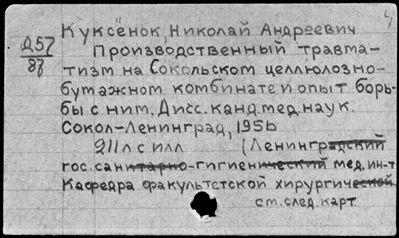 4
Куксёнок, Николай Андреевич
Д57
87
Производственный травма-
тизм на Сокольском целлюлозно-
бумажном комбинате и опыт борь-
бы с ним. Дисс. канд. мед. наук.
Сокол-Ленинград, 1956
211 л с илл (Ленинградский
гос. санитарно-гигиенический мед. ин-т
Кафедра факультетской хирургической
ст. след. карт